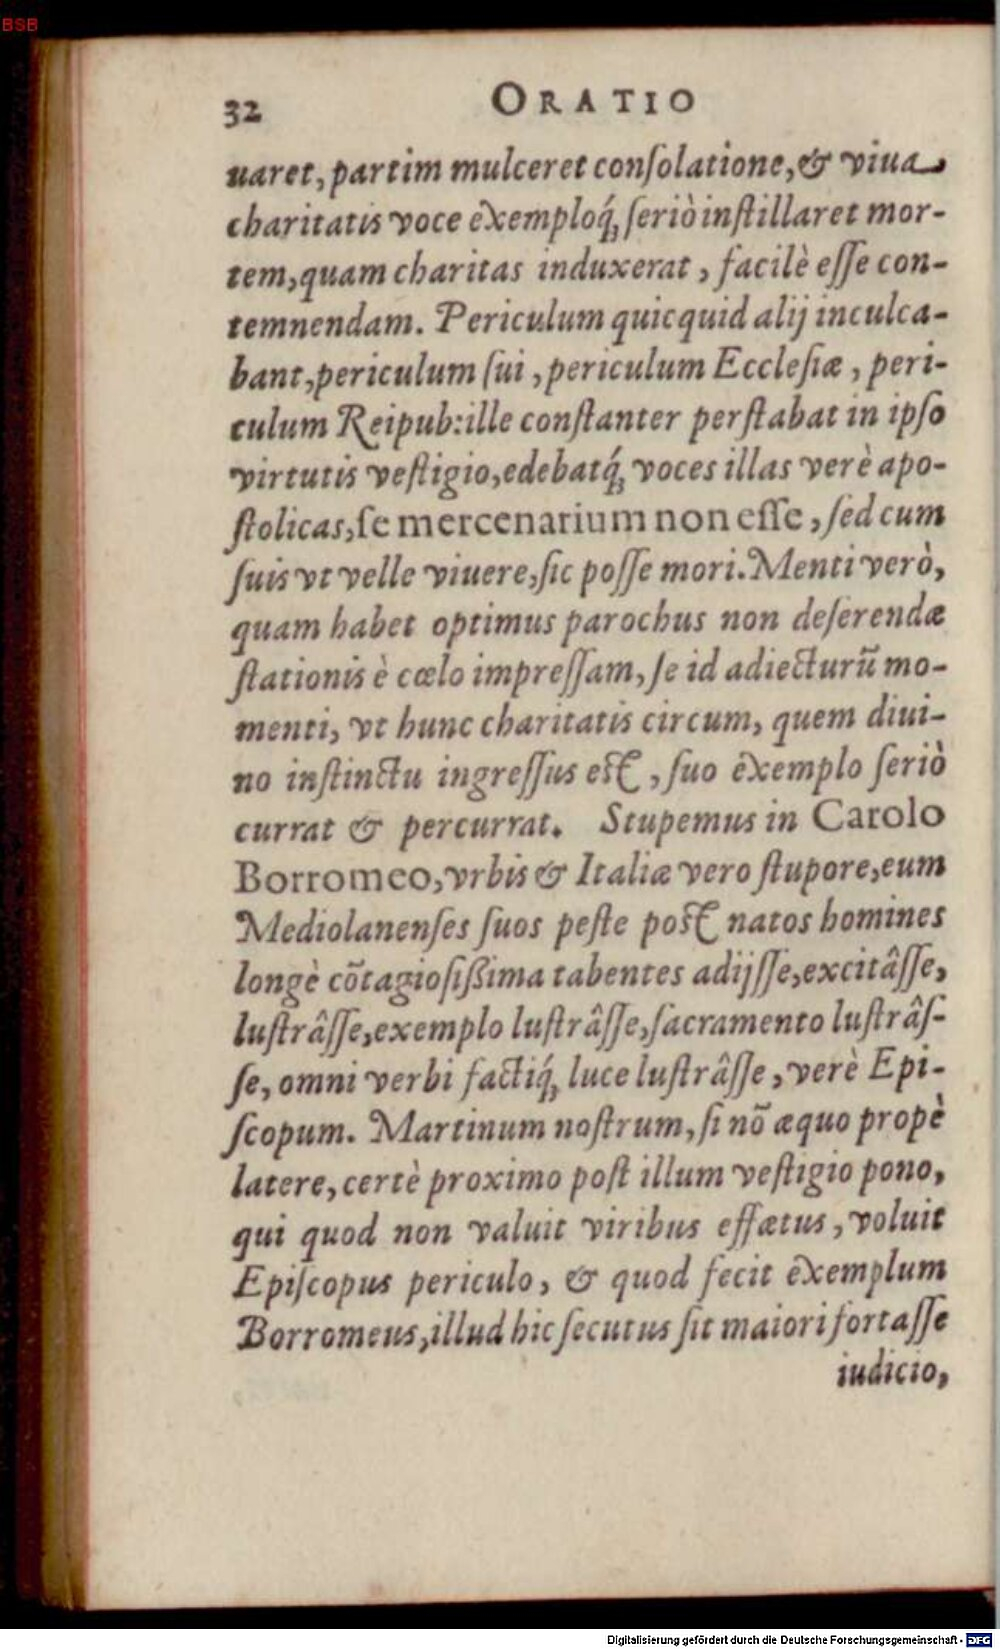 BSB
32 ORATIO
uaret, partim mulceret conſolatione, & viua
charitatis voce exemploq́ꝫ ſeriò inſtillaret mor-
tem, quam charitas induxerat, facilè eſſe con-
temnendam. Periculum quicquid alij inculca-
bant, periculum ſui, periculum Eccleſiæ, peri-
culum Reipub: ille conſtanter perſtabat in ipſo
virtutis veſtigio, edebatq́ꝫ voces illas verè apo-
ſtolicas, ſe mercenarium non eſſe, ſed cum
ſuis vt velle viuere, ſic poſſe mori. Menti verò,
quam habet optimus parochus non deſerendæ
ſtationis è cœlo impreſſam, ſe id adiecturũ mo-
menti, vt hunc charitatis circum, quem diui-
no inſtinctu ingreſſus eſt, ſuo exemplo ſeriò
currat & percurrat. Stupemus in Carolo
Borromeo, vrbis & Italiæ vero ſtupore, eum
Mediolanenſes ſuos peſte poſt natos homines
longè cõtagioſiſſima tabentes adijſſe, excitâſſe,
luſtrâſſe, exemplo luſtrâſſe, ſacramento luſtrâſ-
ſe, omni verbi factiq́ꝫ luce luſtrâſſe, verè Epi-
ſcopum. Martinum noſtrum, ſi nõ æquo propè
latere, certè proximo poſt illum veſtigio pono,
qui quod non valuit viribus effætus, voluit
Epiſcopus periculo, & quod fecit exemplum
Borromeus, illud hic ſecutus ſit maiori fortaſſe
iudicio,
Digitalisierung gefördert durch die Deutsche Forschungsgemeinschaft - DFG